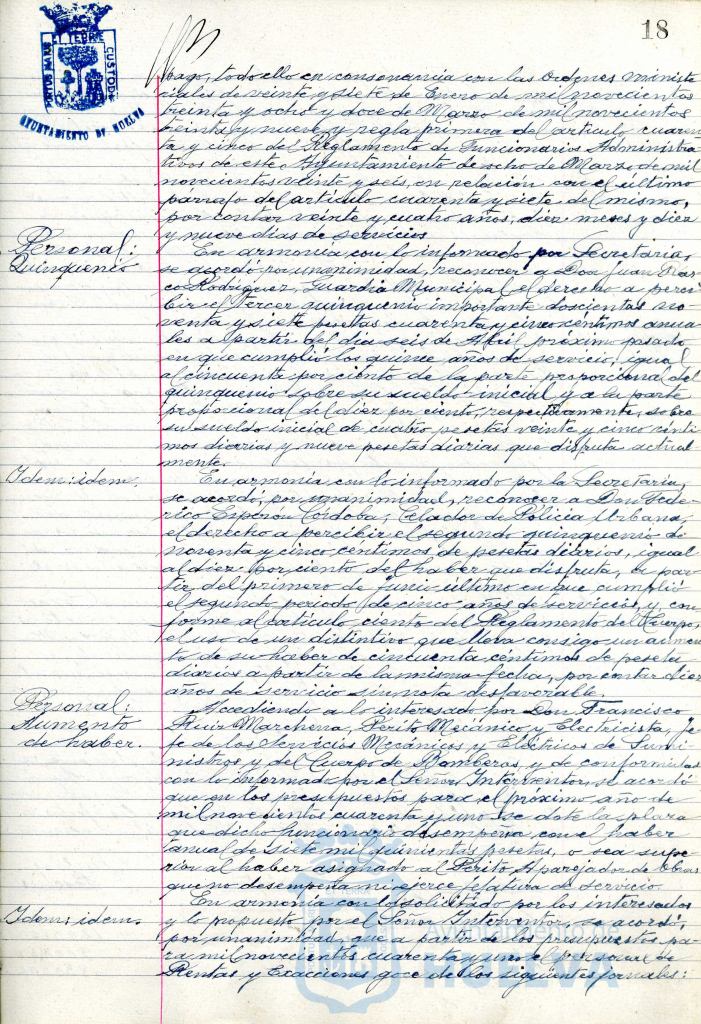 18
PORTUS MARIS ET TERRE CUSTODIA
AYUNTAMIENTO DE HUELVA
pago, todo ello en consonancia con las Ordenes ministe
riales de veinte y siete de Enero de mil novecientos
treinta y ocho y doce de Marzo de mil novecientos
treinta y nueve y regla primera del artículo cuaren
ta y cinco del Reglamento de Funcionarios Administra
tivos de este Ayuntamiento de ocho de Marzo de mil
novecientos veinte y seis, en relación con el último
párrafo del artículo cuarenta y siete del mismo,
por contar veinte y cuatro años, diez meses y diez
y nueve días de servicios.
Personal:
Quinquenio
En armonía con lo informado por Secretaría,
se acordó por unanimidad, reconocer a Don Juan Fras
co Rodríguez, Guardia Municipal el derecho a perci
bir el tercer quinquenio importante doscientas no
venta y siete pesetas cuarenta y cinco céntimos anua
les a partir del día seis de Abril próximo pasado
en que cumplió los quince años de servicio, igual
al cincuenta por ciento de la parte proporcional del
quinquenio sobre su sueldo inicial y a la parte
proporcional del diez por ciento, respectivamente, sobre
su sueldo inicial de cuatro pesetas veinte y cinco cénti
mos diarias y nueve pesetas diarias que disfruta actual
mente.
Idem: idem.
En armonía con lo informado por la Secretaría,
se acordó, por unanimidad, reconocer a Don Fede
rico Esperón Córdoba, Celador de Policía Urbana,
el derecho a percibir el segundo quinquenio de
noventa y cinco céntimos de pesetas diarios, igual
al diez por ciento del haber que disfruta, a par
tir del primero de junio último en que cumplió
el segundo periodo de cinco años de servicios, y, con
forme al artículo ciento del Reglamento del Cuerpo,
el uso de un distintivo que lleva consigo un aumen
to de su haber de cincuenta céntimos de pesetas
diarios a partir de la misma fecha, por contar diez
años de servicio sin nota desfavorable.
Personal:
Aumento
de haber.
Accediendo a lo interesado por Don Francisco
Ruiz Marchena, Perito Mecánico y Electricista, Je
fe de los Servicios Mecánicos y Eléctricos de Sumi
nistros y del Cuerpo de Bomberos, y de conformidad
con lo informado por el Señor Interventor, se acordó
que en los presupuestos para el próximo año de
mil novecientos cuarenta y uno se dote la plaza
que dicho funcionario desempeña, con el haber
anual de siete mil quinientas pesetas, o sea supe
rior al haber asignado al Perito Aparejador de Obras
que no desempeña ni ejerce jefatura de servicio.
Idem: idem.
En armonía con lo solicitado por los interesados
y lo propuesto por el Señor Interventor, se acordó,
por unanimidad, que a partir de los presupuestos pa
ra mil novecientos cuarenta y uno el personal de
Rentas y Exacciones goce de los siguientes jornales:
Ayuntamiento de
HUELVA